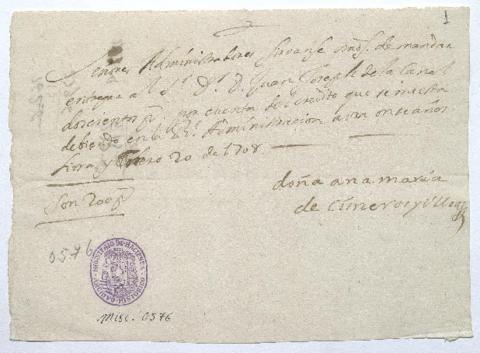 1
Señores Administradores sirvanse Vmds. de mandar
entregar al Sr. Dr. D. Juan Joseph de la Canal
doscientos ps. por cuenta del credito que se me esta
debiendo en Administracion
Lima y Enero 20 de 1708
Son 200 ps
doña ana maria
de Cisneros y
0576
MINISTERIO DE HACIENDA
Misc. 0576